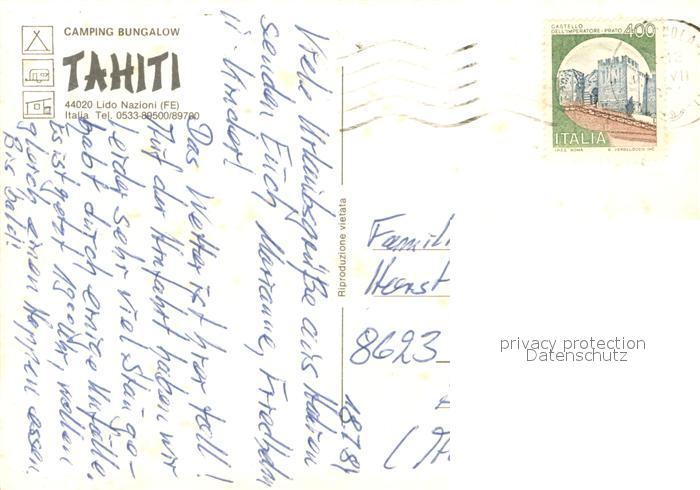 CAMPING BUNGALOW
TAHITI
44020 Lido Nazioni (FE)
Italia Tel. 0533-89500/89700
Viele Urlaubsgrüße aus Italien
senden Euch Marianne, Friedhelm
u. Kinder!
Das Wetter ist hier toll!
Auf der Hinfahrt haben wir
leider sehr viel Stau ge-
habt durch einige Unfälle.
Es ist jetzt 19 00 Uhr, wollen
gleich einen Happen essen.
Bis bald!
Riproduzione vietata
CASTELLO
DELL'IMPERATORE-PRATO 400
ITALIA
I.P.Z.S. ROMA
Famil
Heerst
8623
privacy protection
Datenschutz